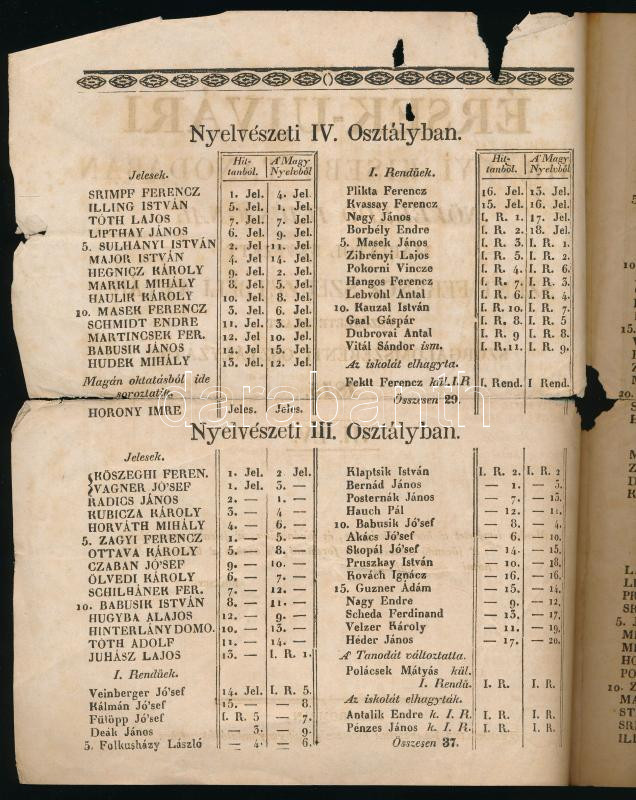 Nyelvészeti IV. Osztályban.
Jelesek.
Hit-tanból.
A' Magy Nyelvből
SRIMPF FERENCZ 1. Jel. 4. Jel.
ILLING ISTVÁN 5. Jel. 1. Jel.
TÓTH LAJOS 7. Jel. 7. Jel.
LIPTHAY JÁNOS 6. Jel. 9. Jel.
5. SULHANYI ISTVÁN 2. Jel 11. Jel.
MAJOR ISTVÁN 4. Jel 14. Jel.
HEGNICZ KÁROLY 9. Jel. 2. Jel.
MARKLI MIHÁLY 8. Jel. 5. Jel.
HAULIK KÁROLY 10. Jel. 8. Jel.
10. MASEK FERENCZ 3. Jel. 6. Jel.
SCHMIDT ENDRE 11. Jel. 3. Jel.
MARTINCSEK FER. 12. Jel 10. Jel.
BABUSIK JÁNOS 14. Jel 15. Jel.
HUDEK MIHÁLY 13. Jel. 12. Jel.
Magán oktatásból ide
soroztatik.
HORONY IMRE Jeles. Jeles.
I. Rendűek.
Hit-tanból.
A' Magy Nyelvből.
Plikta Ferencz 16. Jel. 13. Jel.
Kvassay Ferencz 15. Jel. 16. Jel.
Nagy János I. R. 1. 17. Jel.
Borbély Endre I. R. 2. 18. Jel.
5. Masek János I. R. 3. I. R. 1.
Zibrényi Lajos I. R. 5. I. R. 2.
Pokorni Vincze I. R. 4. I. R. 6.
Hangos Ferencz I. R. 7. I. R. 3.
Lebvohl Antal I. R. 6. I. R. 4.
10. Kauzal István I. R. 10. I. R. 7.
Gaal Gáspár I. R. 8. I. R. 5
Dubrovai Antal I. R. 9 I. R. 8.
Vitál Sándor ism. I. R. 11. I. R. 9.
Az iskolát elhagyta.
Fektt Ferencz kül. I.R I. Rend. I Rend.
Összesen 29.
Nyelvészeti III. Osztályban.
Jelesek.
KÖSZEGHI FEREN. 1. Jel. 2 Jel.
VAGNER JÓ'SEF 1. Jel. 3. —
RADICS JÁNOS 2. — 1. —
KUBICZA KÁROLY 3. — 4 —
HORVÁTH MIHÁLY 4. — 6. —
5. ZAGYI FERENCZ 1. — 5. —
OTTAVA KÁROLY 5. — 8. —
CZABAN JÓ'SEF 9. — 10. —
ÖLVEDI KÁROLY 6. — 7. —
SCHILHÁNEK FER. 7. — 12. —
10. BABUSIK ISTVÁN 8. — 11. —
HUGYBA ALAJOS 12. — 9. —
HINTERLÁNY DOMO. 10. — 13. —
TÓTH ADOLF 11. — 14. —
JUHÁSZ LAJOS 13. — I. R. 1.
I. Rendűek.
Veinberger Jó'sef 14. Jel. I. R. 5.
Kálmán Jó'sef 15. — — 8.
Fülöpp Jó'sef I. R. 5 — 7.
Deák János — 3. — 9.
5. Folkusházy László — 4. — 6.
Klaptsik István I. R. 2. I. R. 2
Bernád János — 1. — 3.
Posternák János — 7. — 13.
Hauch Pál — 12. — 11.
10. Babusik Jó'sef — 8. — 4.
Akács Jó'sef — 6. — 10.
Skopál Jó'sef — 14. — 15.
Pruszkay István — 10. — 18.
Kovách Ignácz — 16. — 16.
15. Guzner Ádám — 15. — 14.
Nagy Endre — 9. — 12.
Scheda Ferdinand — 13. — 17.
Velzer Károly — 11. — 19.
Héder János — 17. — 20.
A' Tanodát változtatta.
Polácsek Mátyás kül.
I. Rendű. I. R. I. R.
Az iskolát elhagyták.
Antalik Endre k. I. R I. R. I. R.
Pénzes János k. I. R. I. R. I. R.
Összesen 37.
darabanth